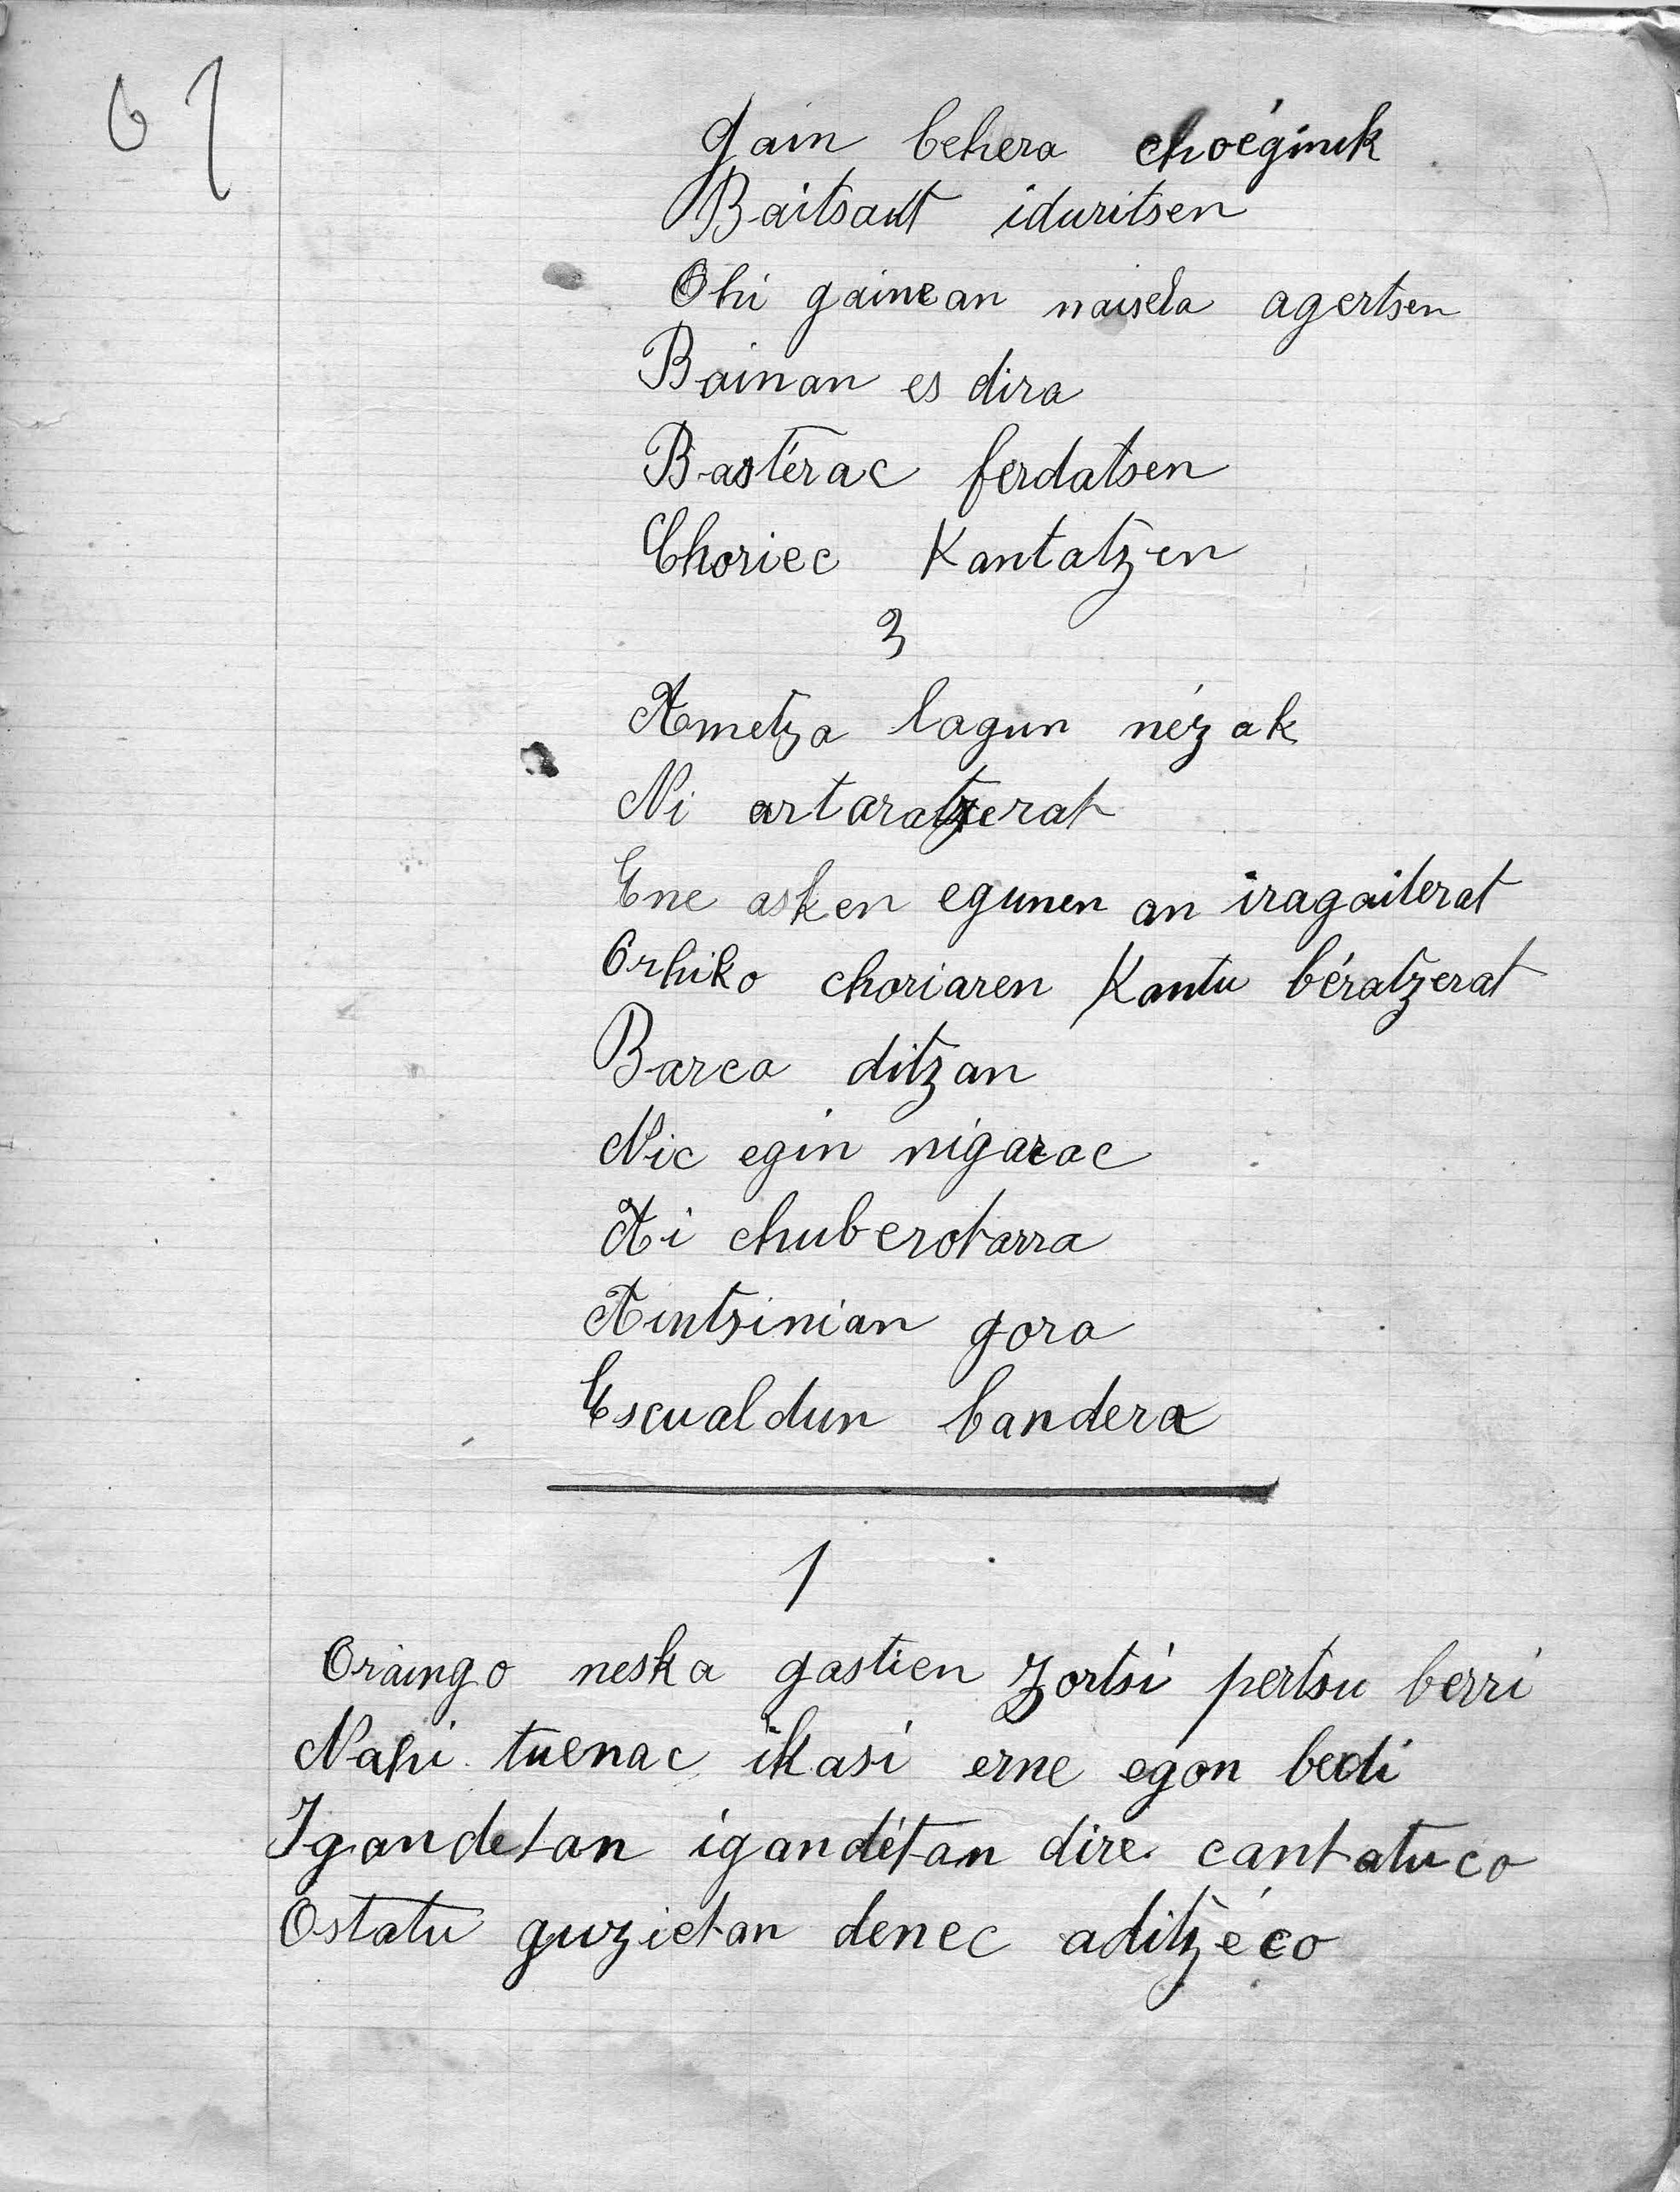 67
Gain behera choéginik
Baitsaut iduritsen
Ohi gainean naisela agertsen
Bainan es dira
Bastérac ferdatsen
Choriec Kantatzen
3
Ametza lagun nézak
Ni artaratzerat
Ene asken egunen an iragaiterat
Orhiko choriaren Kantu bératzerat
Barca ditzan
Nic egin nigarac
Ai chuberotarra
Aintsinian gora
Escualdun bandera
1
Oraingo neska gastien zortsi pertsu berri
Nahi tuenac ikasi erne egon bedi
Igandetan igandétan dire cantatuco
Ostatu guzietan denec aditzéco